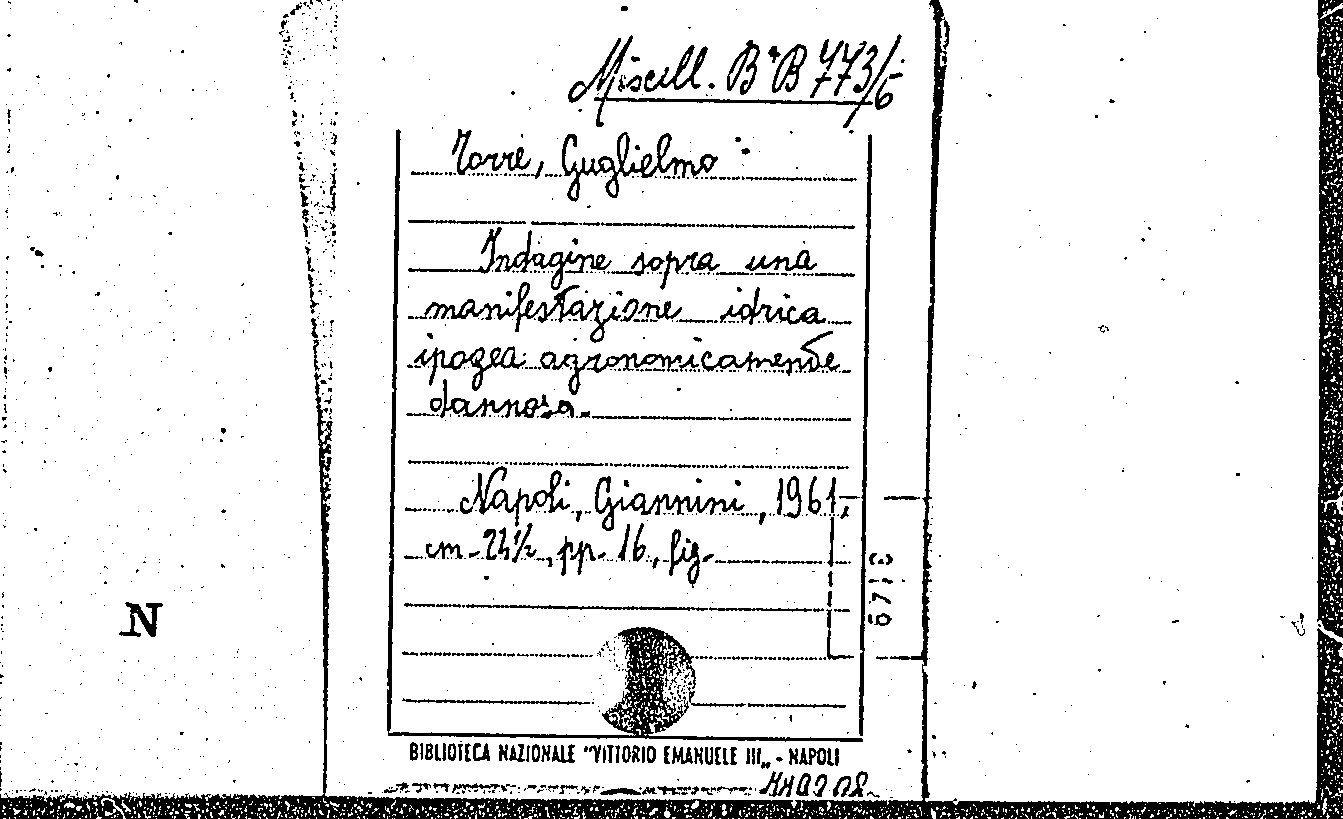 Miscell. B*B 773/6
Torre, Guglielmo
Indagine sopra una
manifestazione idrica
ipogea agronomicamente
dannosa.
Napoli, Giannini, 1961,
cm. 24½, pp. 16, fig.
N
BIBLIOTECA NAZIONALE "VITTORIO EMANUELE III„ - NAPOLI